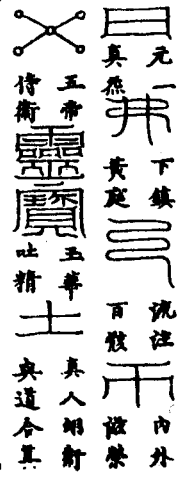 元一
真炁
下鎮
黃庭
流注
百骸
內外
滋榮
五帝
侍衛
靈寶
玉華
吐精
土
真人
與道合真